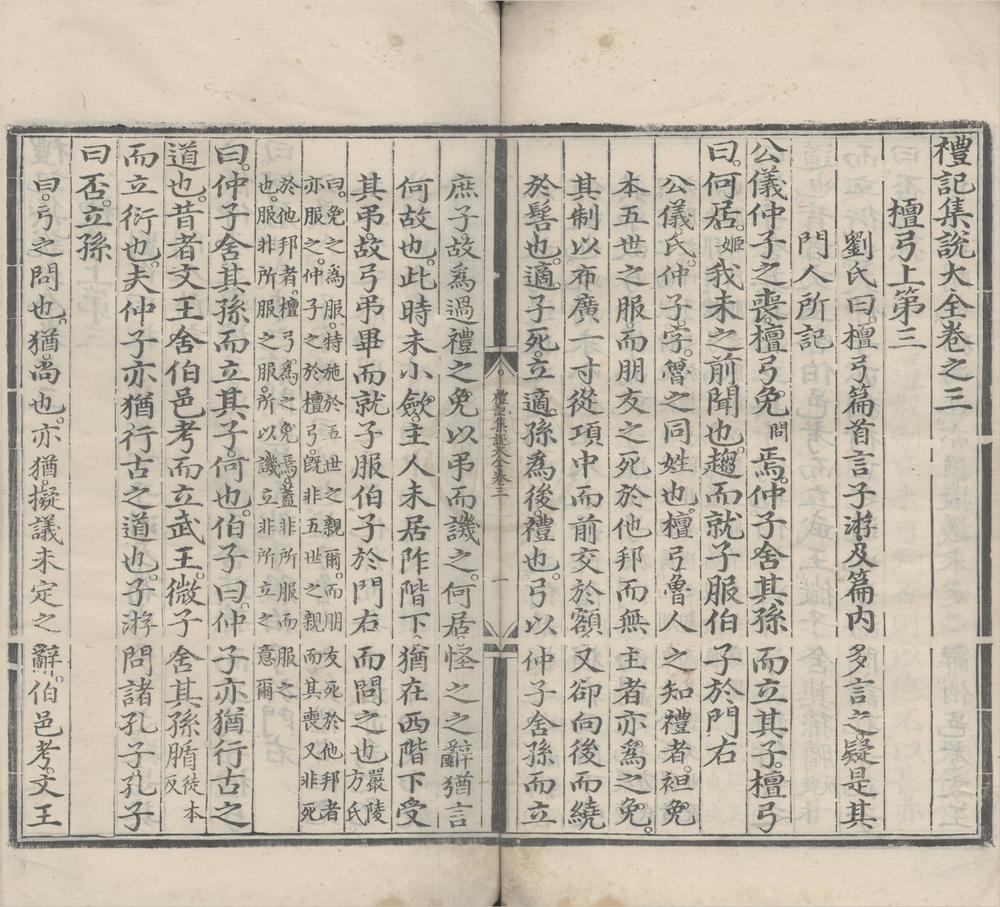 禮記集說大全卷之三
檀弓上第三
劉氏曰。檀弓篇首言子游及篇內多言之。疑是其
門人所記
公儀仲子之喪檀弓免問焉。仲子舍其孫而立其子。檀弓
曰。何居。姬我未之前聞也。趨而就子服伯子於門右
公儀氏仲子字。魯之同姓也。檀弓魯人之知禮者。袒免
本五世之服。而朋友之死於他邦而無主者亦爲之免。
其制以布廣一寸從項中而前交於額又卻向後而繞
於髻也。適子死。立適孫爲後。禮也。弓以仲子舍孫而立
禮記集說大全卷三
一
庶子故爲過禮之免以弔而譏之。何居。怪之之辭猶言
何故也。此時未小斂。主人未居阼階下。猶在西階下受
其弔故弓弔畢而就子服伯子於門右而問之也嚴陵方氏
曰。免之爲服。特施於五世之親爾。而朋友死於他邦者
亦服之。仲子之於檀弓。旣非五世之親而其喪又非死
於他邦者。檀弓爲之免焉。蓋非所服而服之
也。服非所服之服。所以譏立非所立之意爾
曰。仲子舍其孫而立其子。何也。伯子曰。仲子亦猶行古之
道也。昔者文王舍伯邑考而立武王。微子舍其孫腯徒本反
而立衍也。夫仲子亦猶行古之道也。子游問諸孔子。孔子
曰否。立孫
曰。弓之問也。猶尙也。亦猶擬議未定之辭。伯邑考。文王